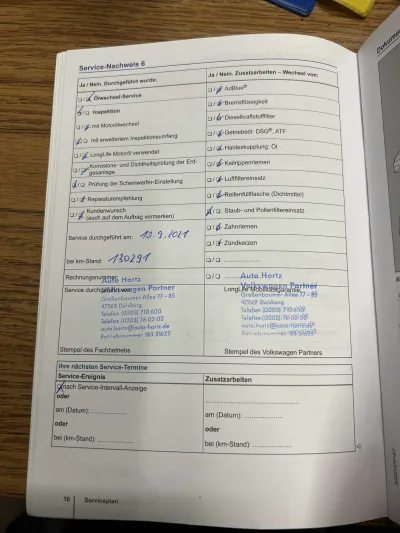 Dokume
Service-Nachweis 6
Ja / Nein. Durchgeführt wurde:
Ja / Nein. Zusatzarbeiten – Wechsel von:
Ölwechsel-Service
Inspektion
mit Motorölwechsel
mit erweitertem Inspektionsumfang
LongLife Motoröl verwendet
Korrosions- und Dichtheitsprüfung der Erd-
gasanlage
Prüfung der Scheinwerfer-Einstellung
Reparaturempfehlung
Kundenwunsch
(auch auf dem Auftrag vermerken)
AdBlue®
Bremsflüssigkeit
Dieselkraftstofffilter
Getriebeöl: DSG®, ATF
Haldexkupplung: Öl
Keilrippenriemen
Luftfiltereinsatz
Reifenfüllflasche (Dichtmittel)
Staub- und Pollenfiltereinsatz
Zahnriemen
Zündkerzen
Service durchgeführt am: 19.9.2021
bei km-Stand: 130291
Rechnungsnummer:
Service durchgeführt von:
Auto Hortz
Volkswagen Partner
Großenbaumer Allee 77 - 85
47269 Duisburg
Telefon (0203) 710 600
Telefax (0203) 76 05 02
auto.hortz@autohortz.de
Betriebsnummer
Stempel des Fachbetriebs
LongLife Mobilitätsgarantie
Auto Hortz
Volkswagen Partner
Großenbaumer Allee 77 - 85
47269 Duisburg
Telefon (0203) 710 600
Telefax (0203) 76 05 02
auto.hortz@autohortz.de
Betriebsnummer
Stempel des Volkswagen Partners
Ihre nächsten Service-Termine
Service-Ereignis
Zusatzarbeiten
nach Service-Intervall-Anzeige
oder
am (Datum):
oder
bei (km-Stand):
am (Datum):
oder
bei (km-Stand):
16 Serviceplan